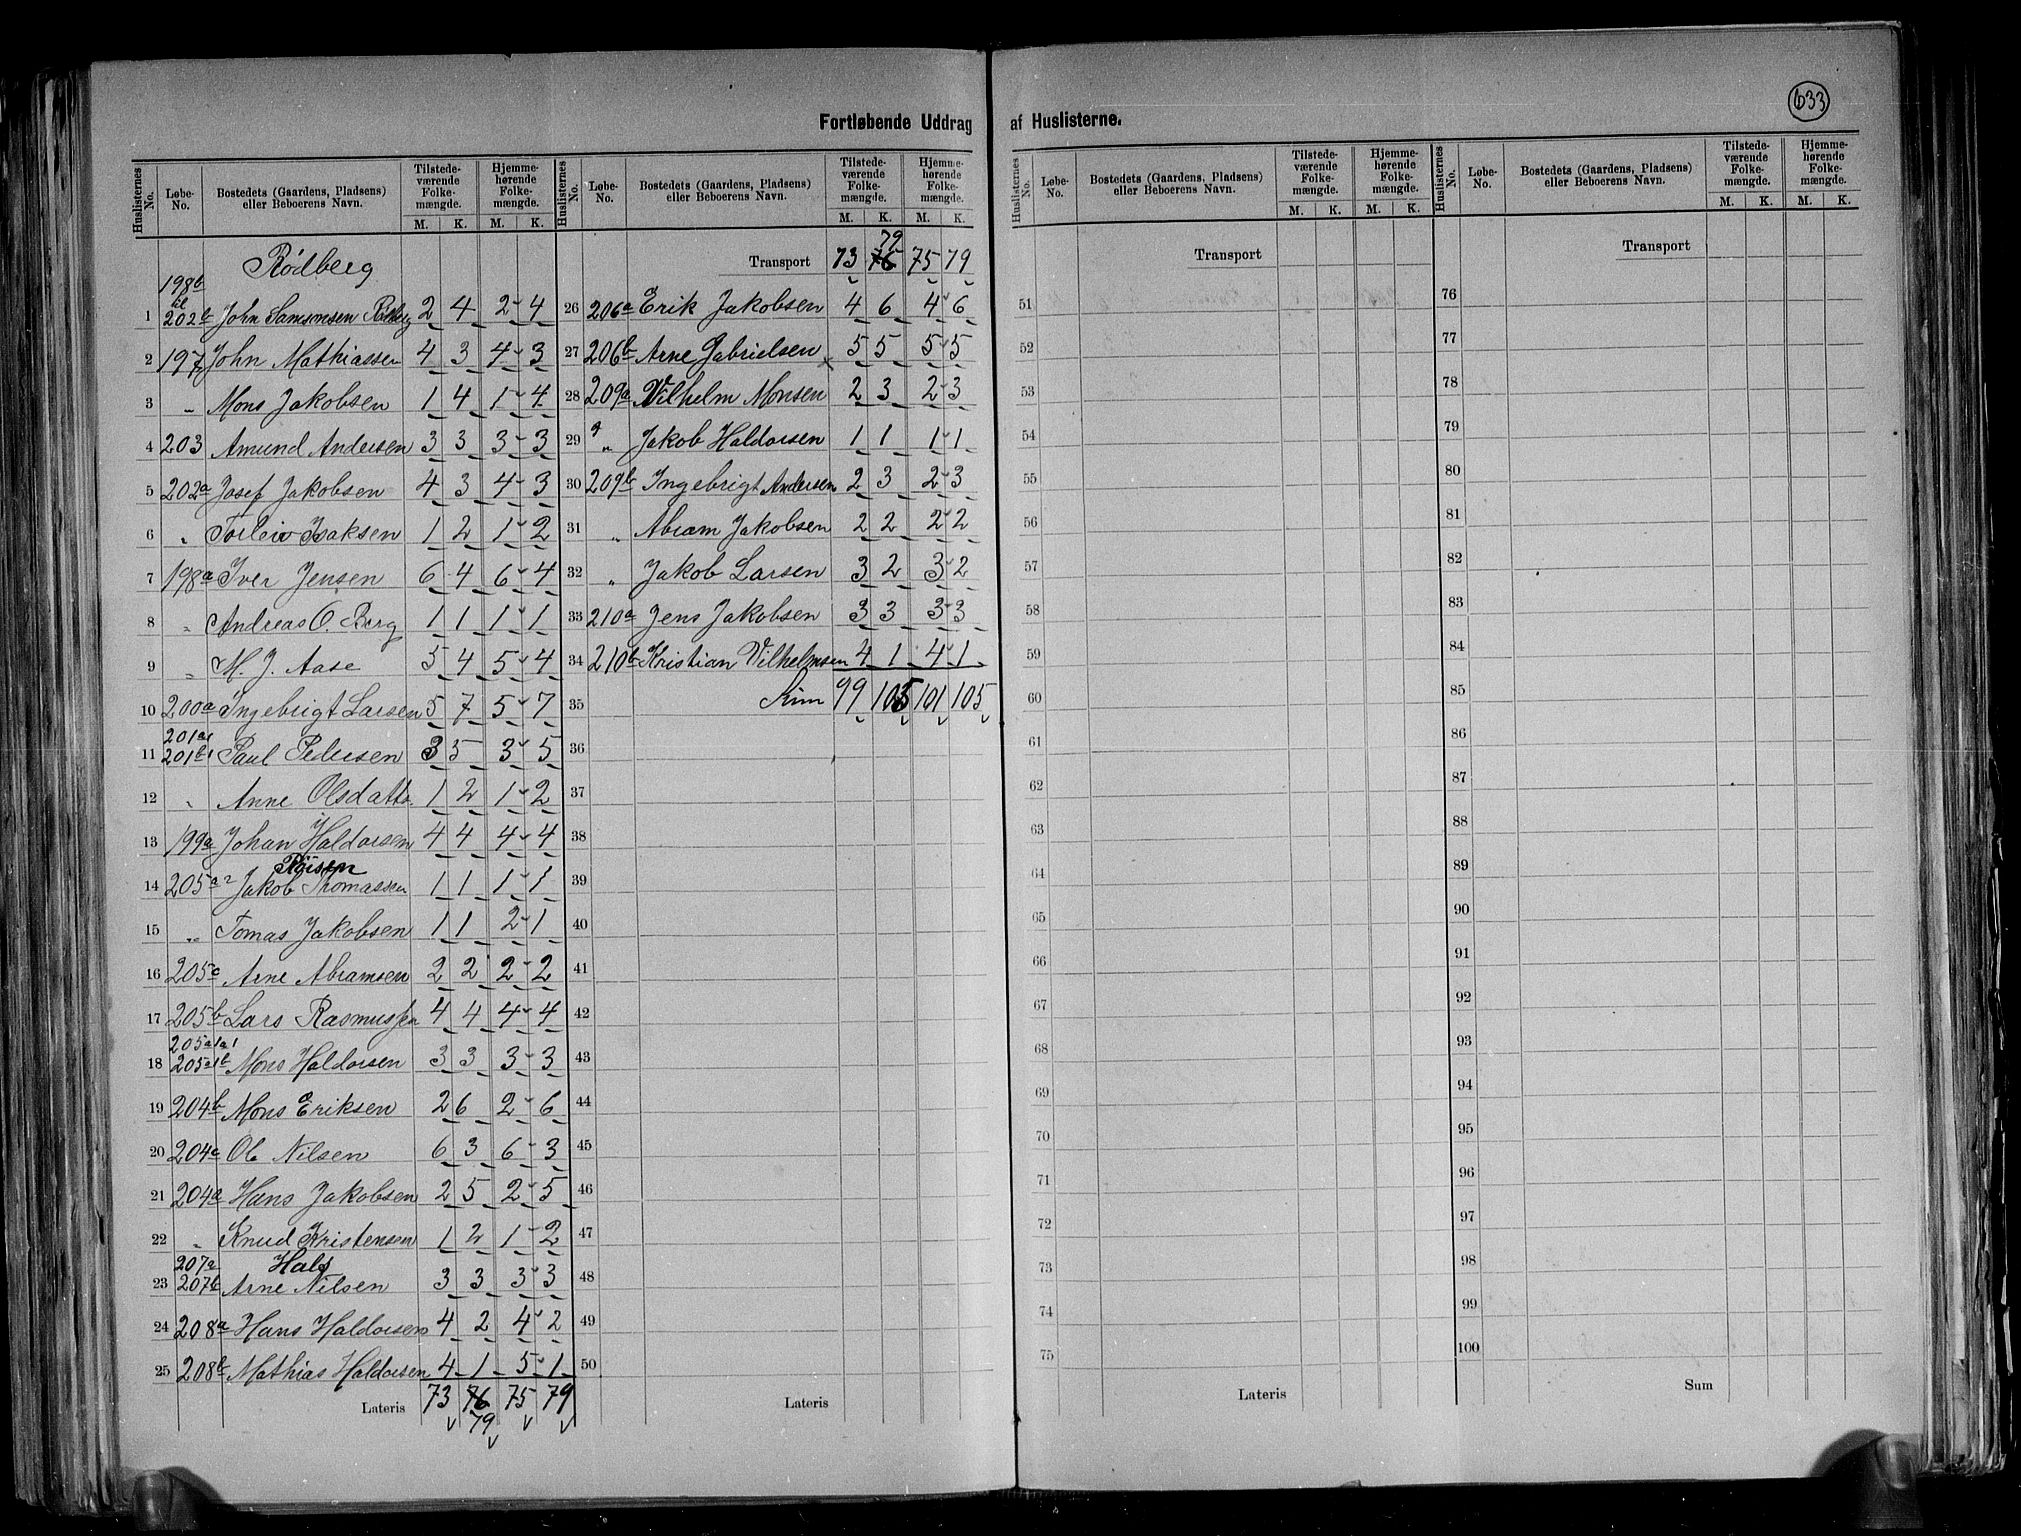 633
Fortløbende Uddrag af Huslisterne.
Huslisternes No. Løbe-No. Bostedets (Gaardens, Pladsens) eller Beboerens Navn. Tilstedeværende Folkemængde. M. K. Hjemmehørende Folkemængde. M. K.
Rödberg
198b
til
1 202b John Samsonsen Rödberg 2 4 2 4
2 197 John Mathiassen 4 3 4 3
3 „ Mons Jakobsen 1 4 1 4
4 203 Amund Andersen 3 3 3 3
5 202a Josef Jakobsen 4 3 4 3
6 „ Torleiv Isaksen 1 2 1 2
7 198a Iver Jensen 6 4 6 4
8 „ Andreas O. Berg 1 1 1 1
9 „ M. J. Aase 5 4 5 4
10 200a Ingebrigt Larsen 5 7 5 7
201a1
11 201b1 Paul Pedersen 3 5 3 5
12 „ Anne Olsdatte 1 2 1 2
13 199a Johan Haldorsen 4 4 4 4
14 205a2 Jakob Thomassen 1 1 1 1
15 „ Tomas Jakobsen 1 1 2 1
16 205c Arne Abramsen 2 2 2 2
17 205b Lars Rasmussen 4 4 4 4
205a1a1
18 205a1b Mons Haldorsen 3 3 3 3
19 204b Mons Eriksen 2 6 2 6
20 204c Ole Nilsen 6 3 6 3
21 204a Hans Jakobsen 2 5 2 5
22 „ Knud Kristensen 1 2 1 2
207a Hals
23 207b Arne Nilsen 3 3 3 3
24 208a Hans Haldorsen 4 2 4 2
25 208b Mathias Haldorsen 4 1 5 1
Lateris 73 76 75 79
79
Huslisternes No. Løbe-No. Bostedets (Gaardens, Pladsens) eller Beboerens Navn. Tilstedeværende Folkemængde. M. K. Hjemmehørende Folkemængde. M. K.
79
Transport 73 76 75 79
26 206a Erik Jakobsen 4 6 4 6
27 206b Arne Gabrielsen 5 5 5 5
28 209a Vilhelm Monsen 2 3 2 3
29 „ Jakob Haldorsen 1 1 1 1
30 209b Ingebrigt Andersen 2 3 2 3
31 „ Abram Jakobsen 2 2 2 2
32 „ Jakob Larsen 3 2 3 2
33 210a Jens Jakobsen 3 3 3 3
34 210b Kristian Vilhelmsen 4 1 4 1
35 Sum 99 105 101 105
36
37
38
39
40
41
42
43
44
45
46
47
48
49
50
Lateris
Huslisternes No. Løbe-No. Bostedets (Gaardens, Pladsens) eller Beboerens Navn. Tilstedeværende Folkemængde. M. K. Hjemmehørende Folkemængde. M. K.
Transport
51
52
53
54
55
56
57
58
59
60
61
62
63
64
65
66
67
68
69
70
71
72
73
74
75
Lateris
Huslisternes No. Løbe-No. Bostedets (Gaardens, Pladsens) eller Beboerens Navn. Tilstedeværende Folkemængde. M. K. Hjemmehørende Folkemængde. M. K.
Transport
76
77
78
79
80
81
82
83
84
85
86
87
88
89
90
91
92
93
94
95
96
97
98
99
100
Sum